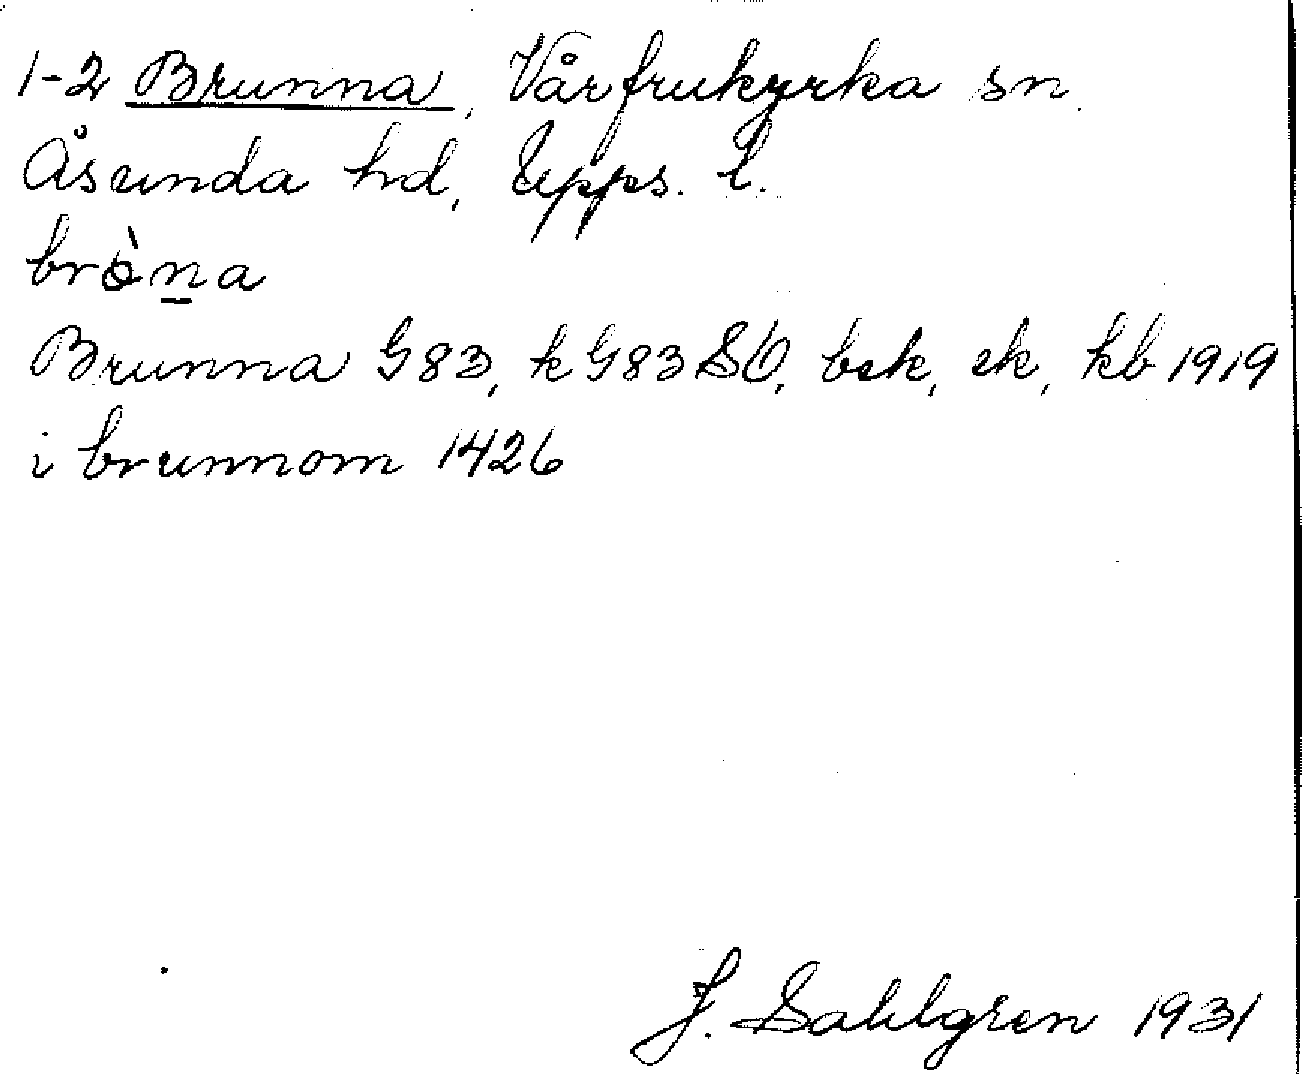 1-2 Brunna, Vårfrukyrka sn.
Åsunda hd, Upps. l.
brò̀n̲a
Brunna G83, k G83 SO, bek, ek, kb 1919
i brunnom 1426
J. Sahlgren 1931